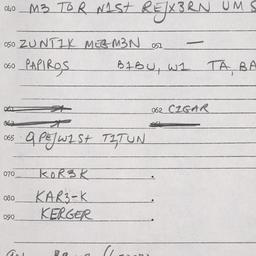 040 M3 TOR N1ST REJX3RN UM S
050 ZUNTIK MEGM3N 051 —
060 PAPIROS B1BU, W1 TA, BA
061
062 CIGAR
063
065 QPEJW1St TITUN
070 KOR3K .
080 KAR3-K .
090 KERGER .